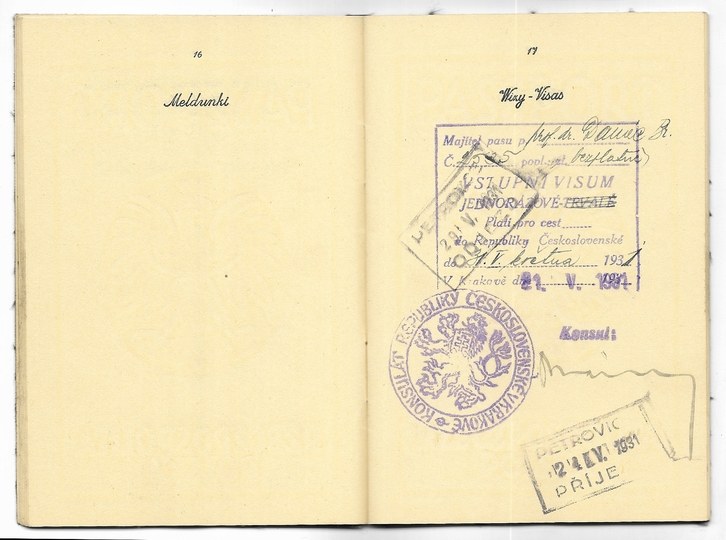 16
Meldunki
17
Wizy - Visas
Majitel pasu p. prof. dr.
Č. povol. vzl. bezplatné
VSTUPNÍ VISUM
JEDNORÁZOVÉ-TRVALÉ
Platí pro cest
do Republiky Československé
do V. května 1931
V Krakově dne 21. V. 1931
Konsul:
KONSULÁT REPUBLIKY ČESKOSLOVENSKÉ V KRAKOVĚ
PETROVIC
V. 1931
PETROVIC
24 V. 1931
PŘÍJE